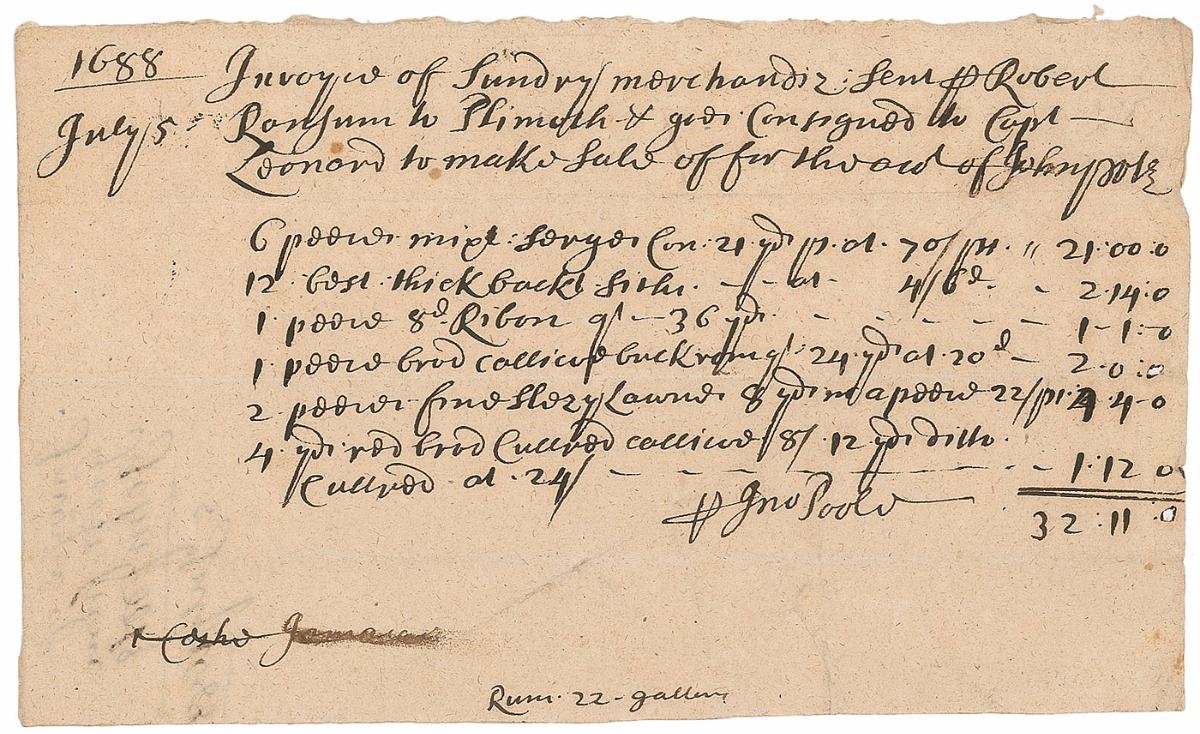 1688
Invoyce of Sundry merchandiz: sent ⅌ Robert
July 5 Ransum to Plimoth & goes Consigned to Capt
Leonard to make Sale off for the acct of John poole
6 peeces mixt: Serges Con: 21 yds p. at. 70/ps. " 21:00:0
12 best thick backt Siths. - - at - 4/6d - 2:14:0
1 peece 8d Ribon qt - 36 yds - - - - - 1-1-0
1 peece brod callicoe buckrom qt 24 yds at 20d - 2-0:0
2 peeces fine Slezy Lawnes 8 yds in a peece 22/ps 4 4-0
4 yds red brod Cullred callicoe 8/ 12 yds ditto
Cullred at 24/ - - - - 1:12 0
⅌ Jno Poole
32:11:0
1 Caske Jamaica
Rum. 22-gallons